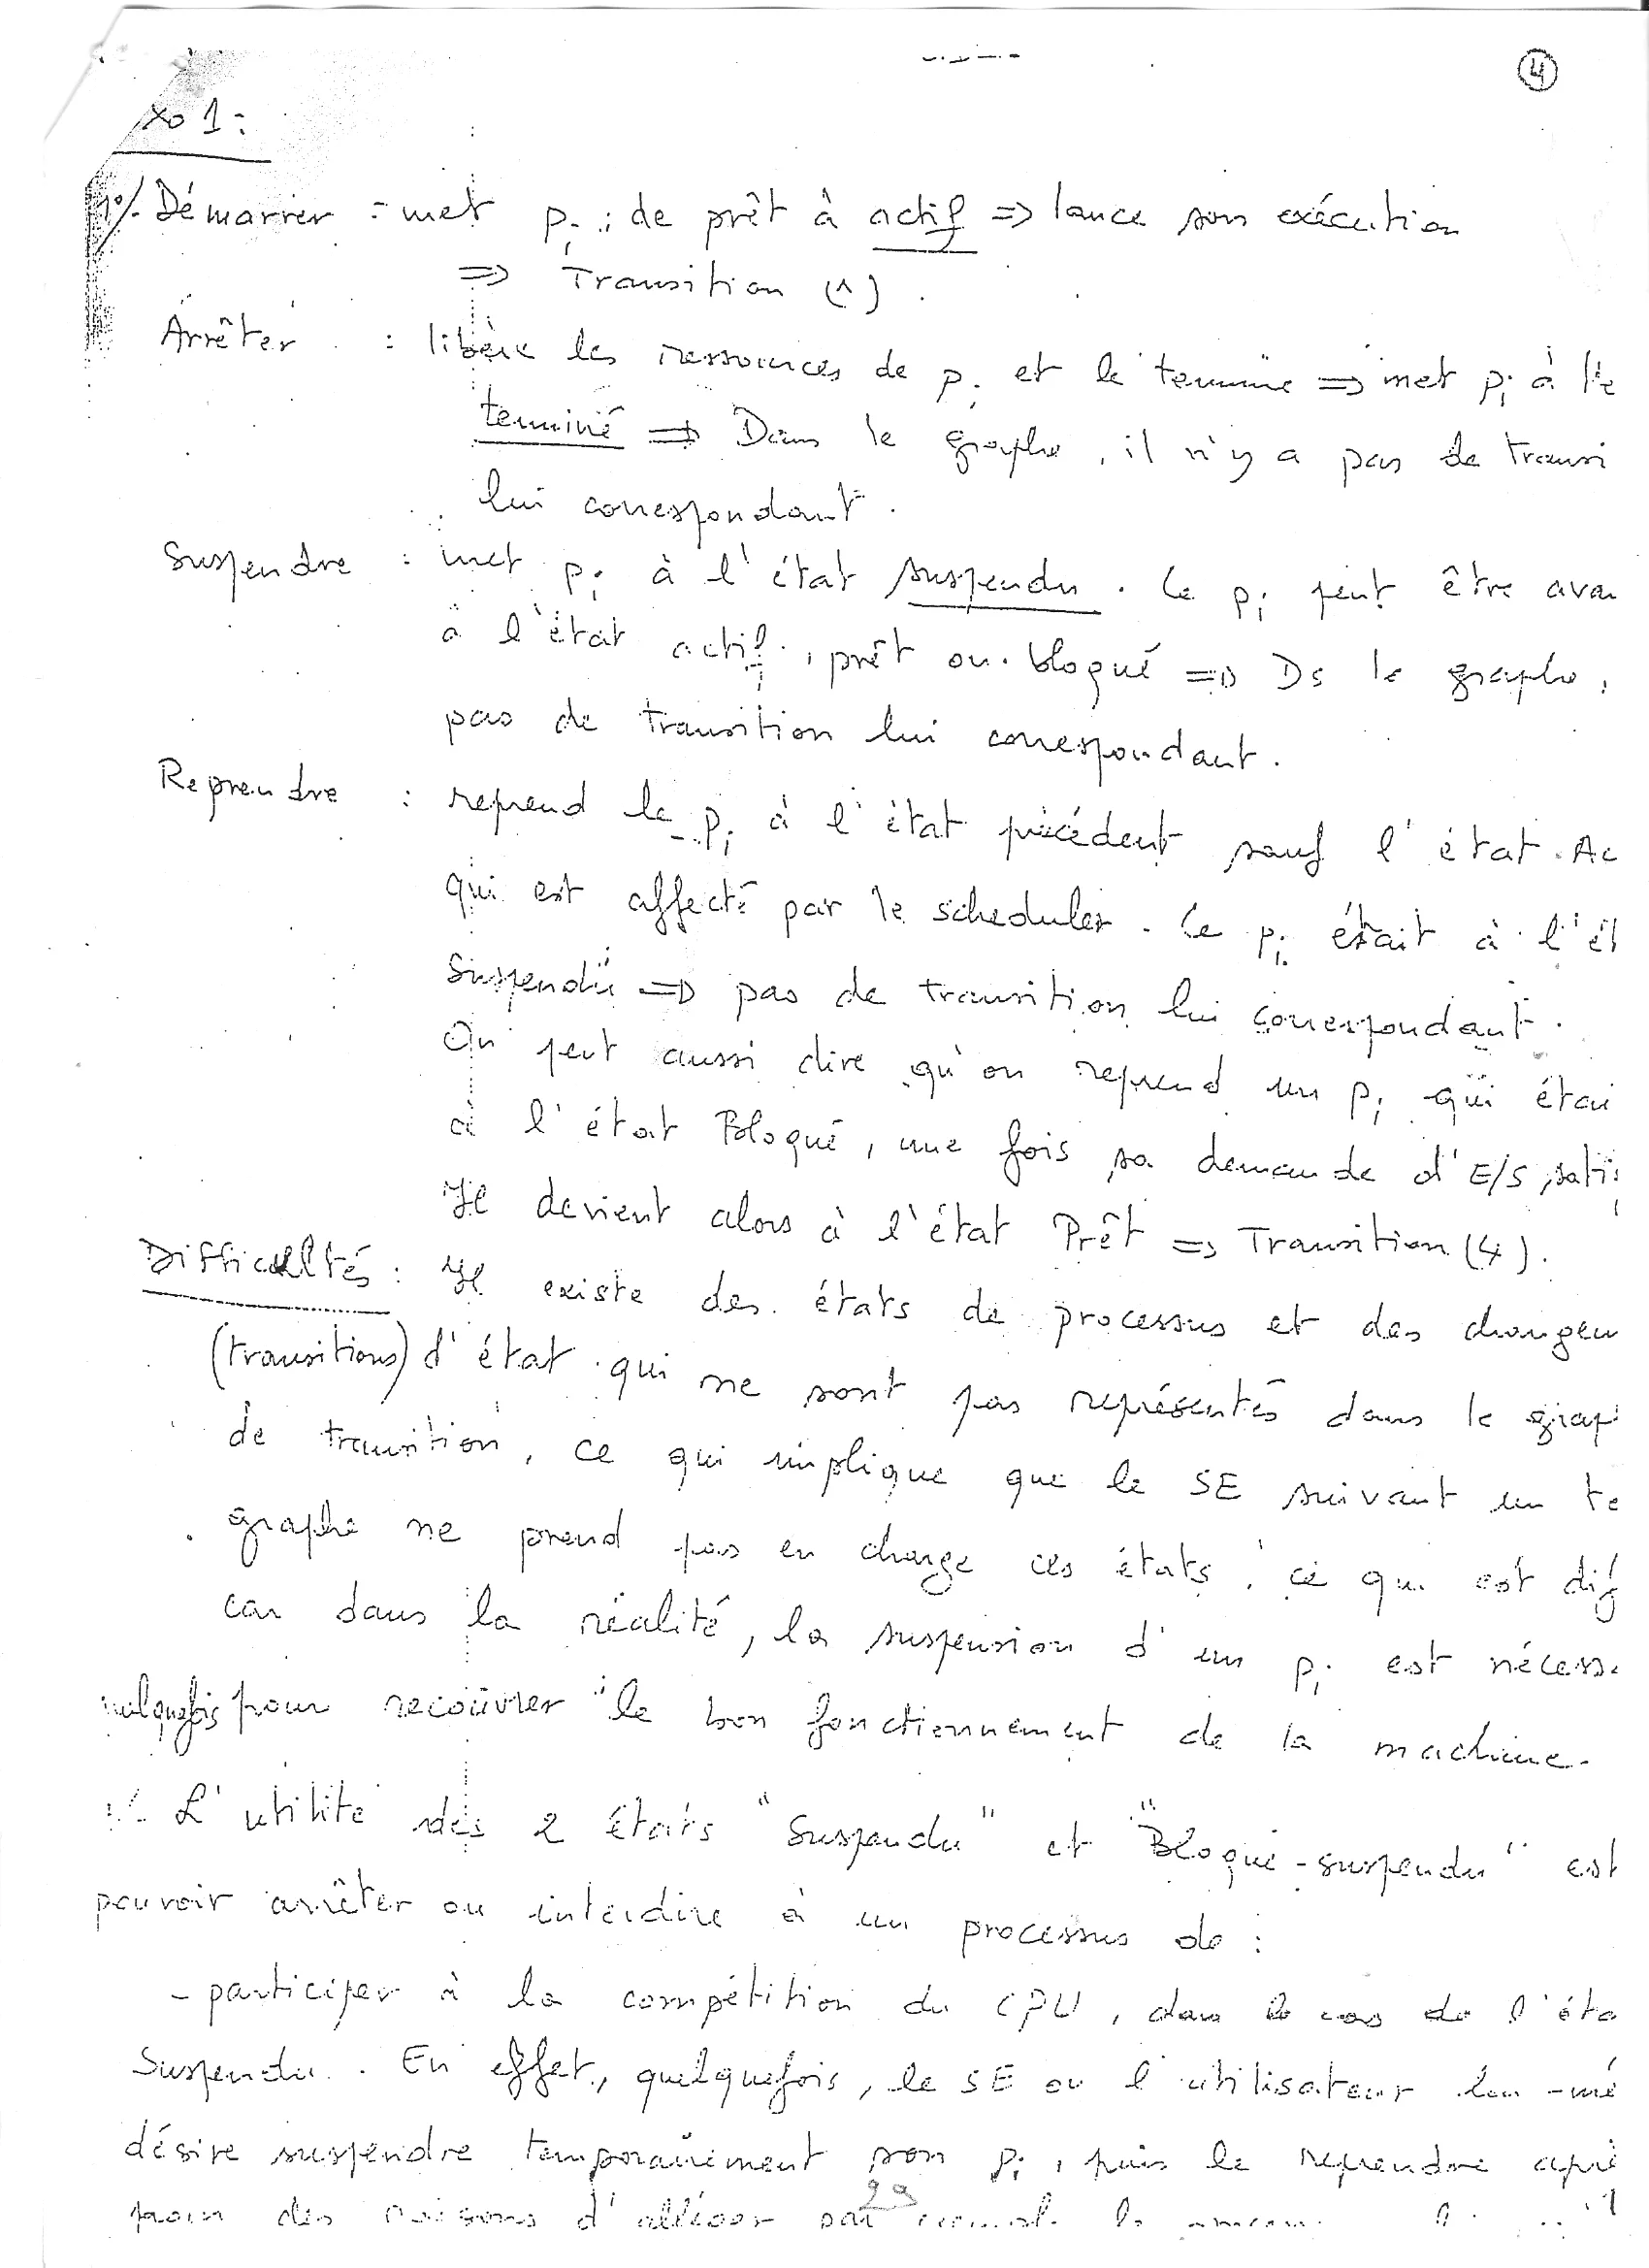 4
xo 1 :
1°/. Démarrer : met pi : de prêt à actif => lance son exécution
=> Transition (1) .
Arrêter : libère les ressources de pi et le termine => met pi à l'é
terminé => Dans le graphe, il n'y a pas de transi
lui correspondant.
Suspendre : met pi à l'état suspendu. Ce pi peut être ava
à l'état actif, prêt ou bloqué => Ds le graphe,
pas de transition lui correspondant.
Reprendre : reprend le pi à l'état précédent sauf l'état Ac
qui est affecté par le scheduler. Ce pi était à l'ét
Suspendu => pas de transition lui correspondant.
On peut aussi dire qu'on reprend un pi qui étai
à l'état Bloqué, une fois sa demande d'E/S satis
Il devient alors à l'état Prêt => Transition (4).
Difficultés : Il existe des états de processus et des changem
(transitions) d'état qui ne sont pas représentés dans le grap
de transition, ce qui implique que le SE suivant un te
graphe ne prend pas en charge ces états, ce qui est dif
car dans la réalité, la suspension d'un pi est nécess
uelquefois pour recouvrer le bon fonctionnement de la machine.
L'utilité des 2 états "Suspendu" et "Bloqué-suspendu" est
pouvoir arrêter ou interdire à un processus de :
- participer à la compétition du CPU, dans le cas de l'éta
Suspendu. En effet, quelquefois, le SE ou l'utilisateur lui-mê
désire suspendre temporairement son pi, puis le reprendre aprè
pour des raisons d'alléger par
29